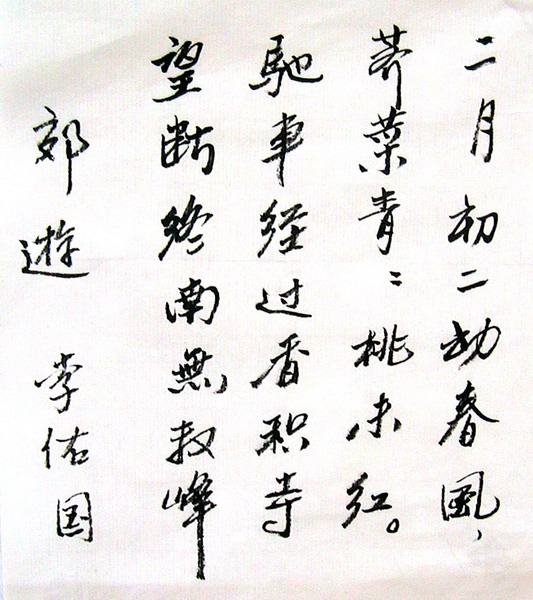 二月初二动春風，
荠菜青：桃未红。
馳車経过香积寺
望断終南無数峰
郊遊 李佑国